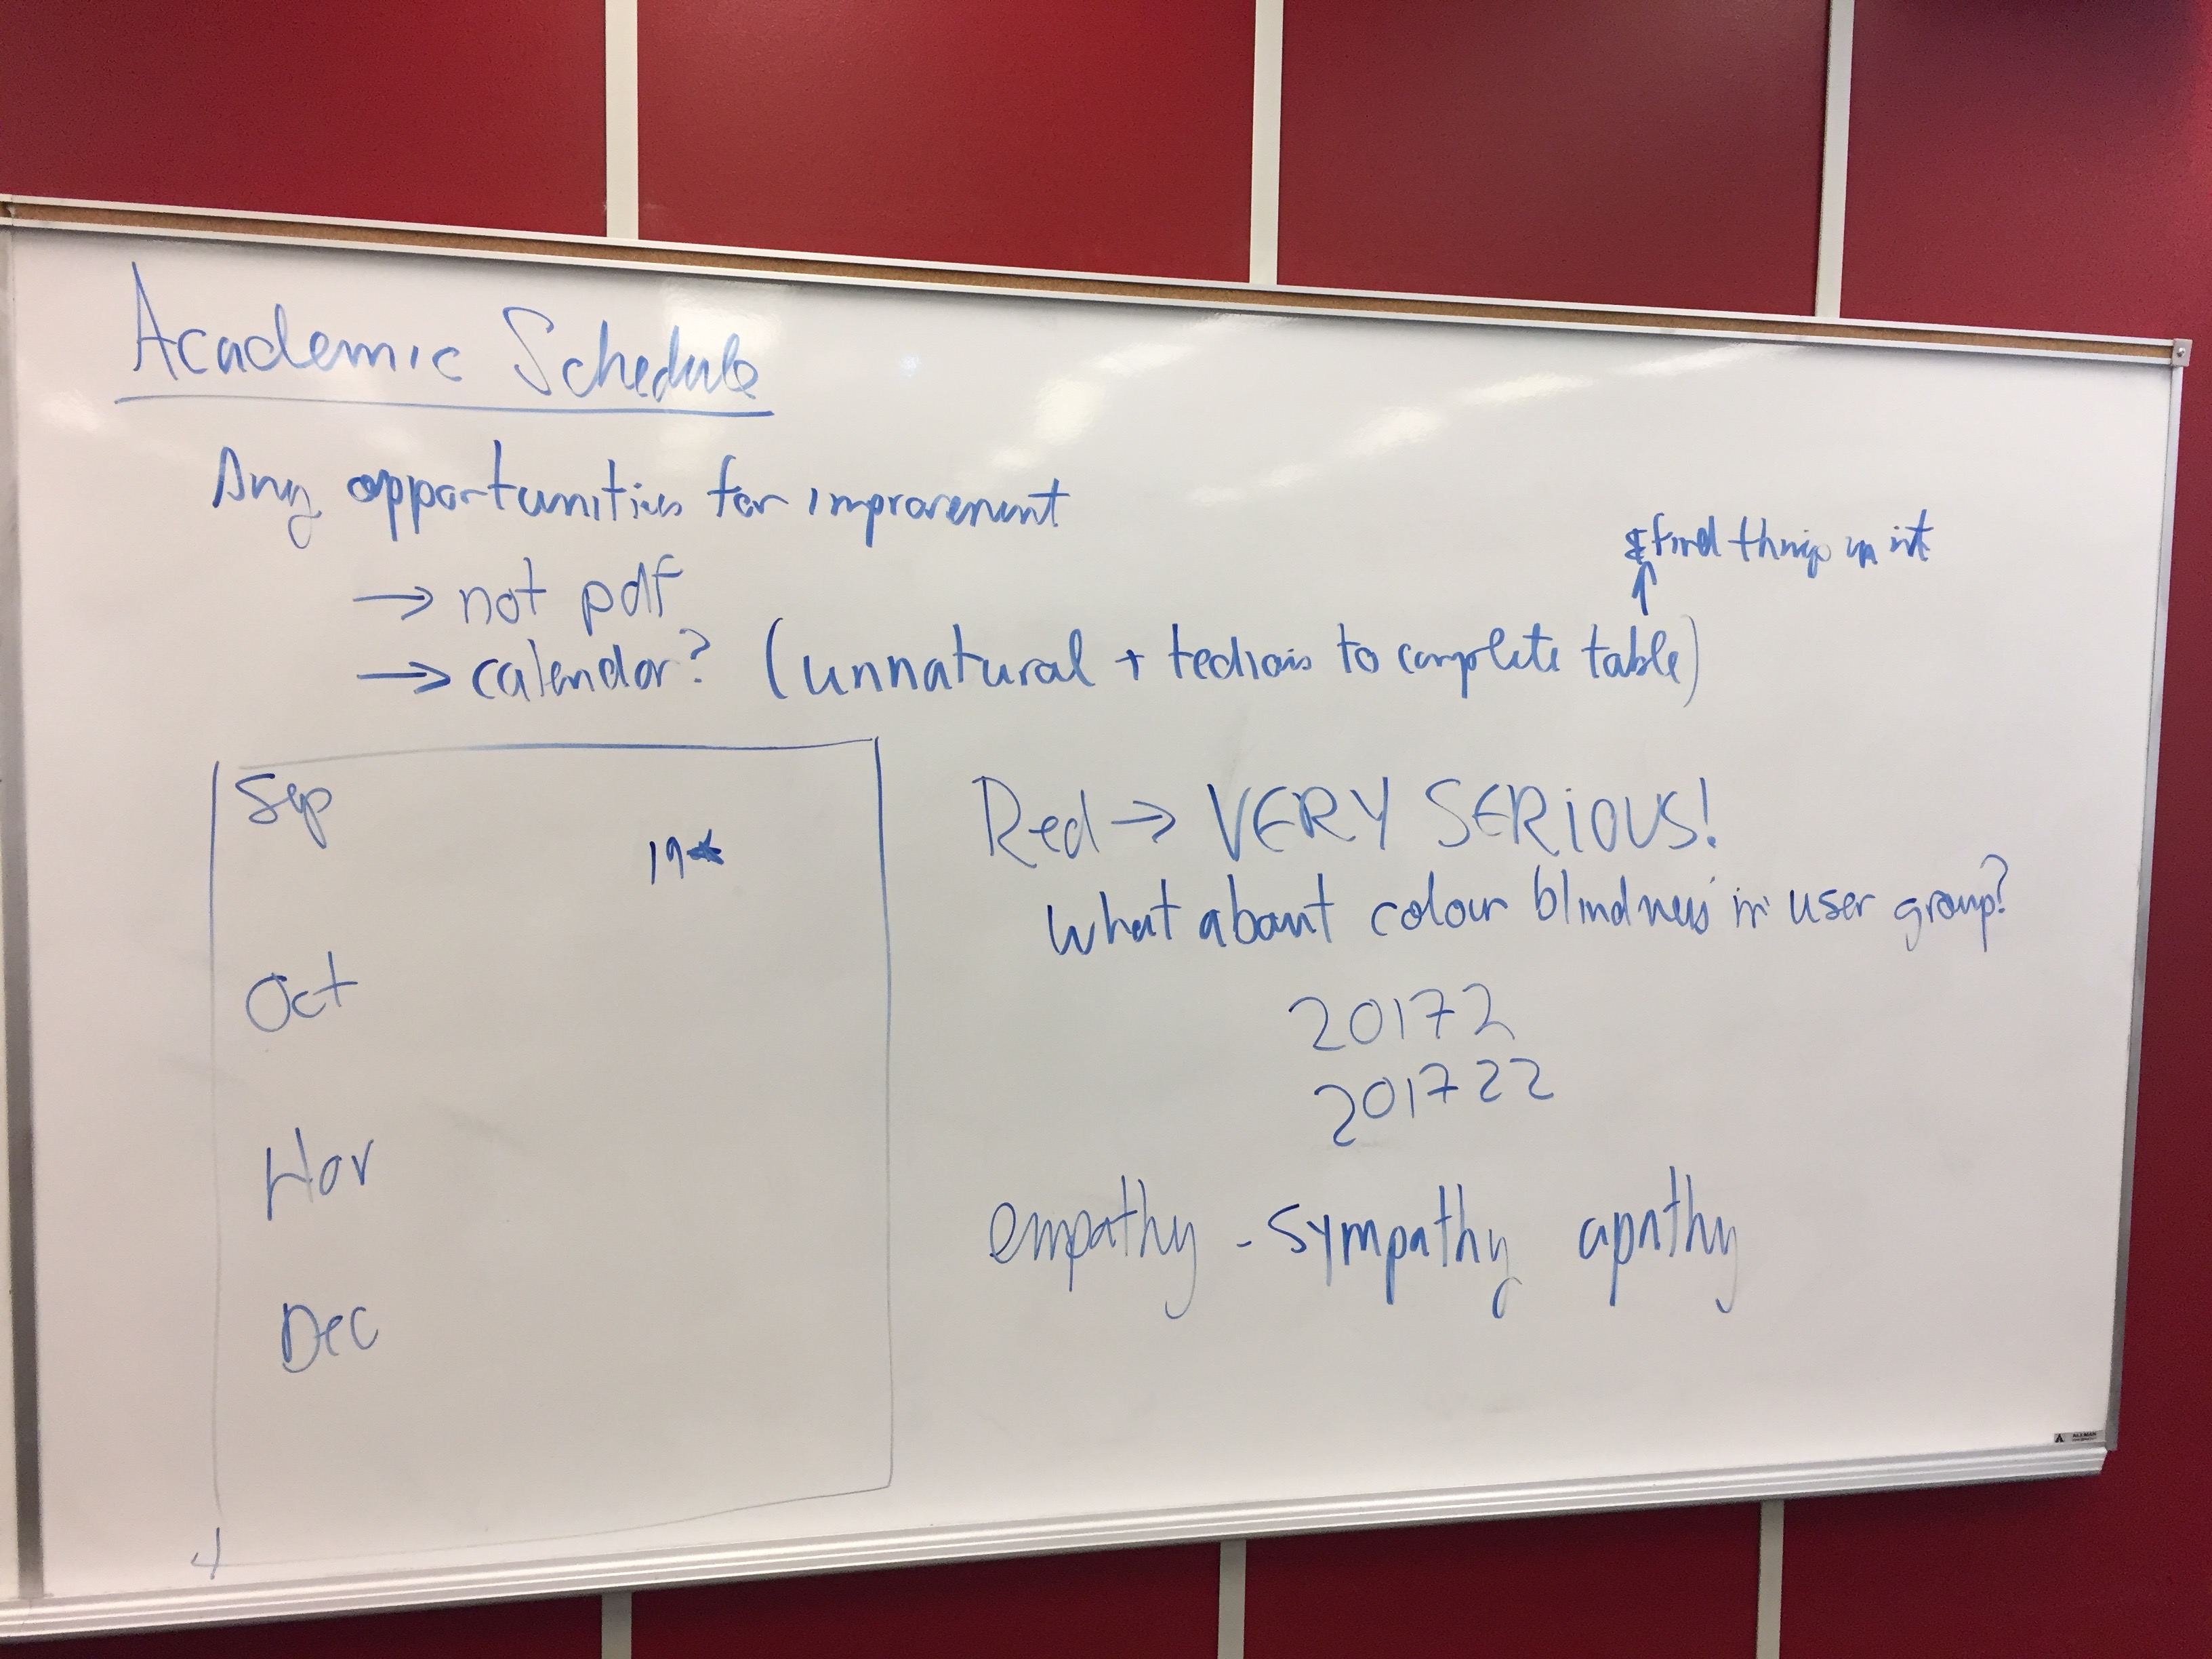 Academic Schedule
Any opportunities for improvement
→ not pdf
& find things in it
↑
→ calendar? (unnatural + tedious to complete table)
Sep
19★
Oct
Nov
Dec
Red → VERY SERIOUS!
what about colour blindness in user group?
20172
201722
empathy - sympathy apathy